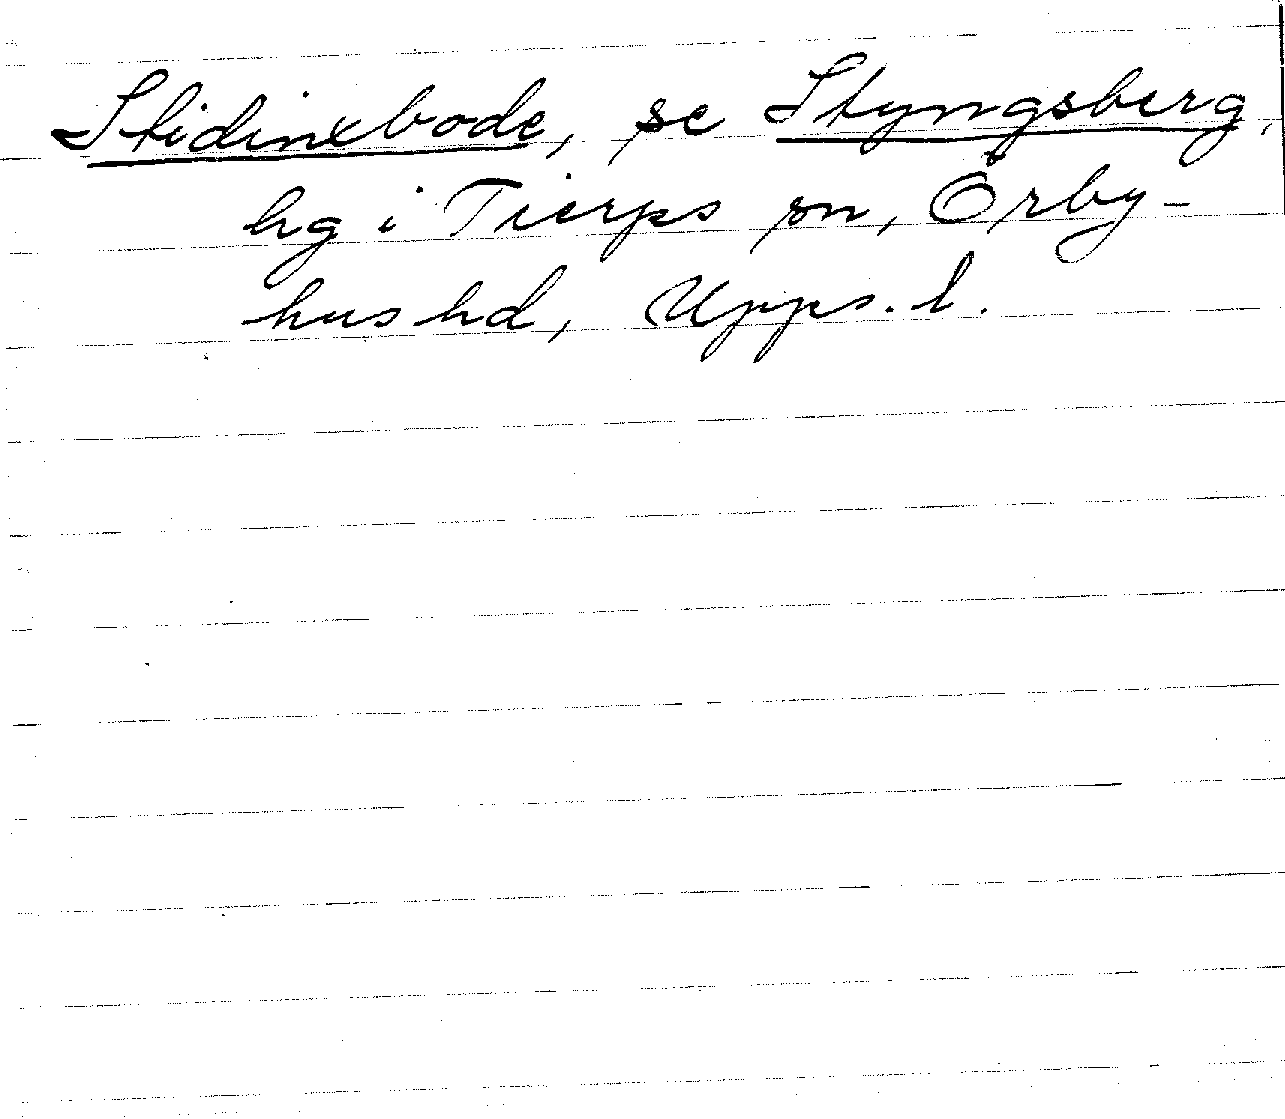 Stidinxbode, se Styngsberg,
hg i Tierps sn, Örby-
hus hd, Upps. l.